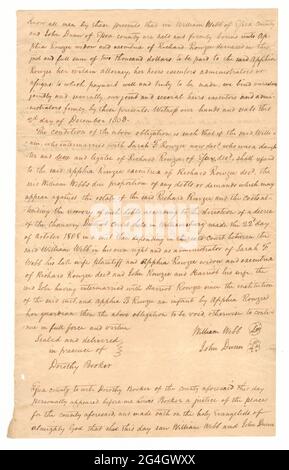 Know all men by these presents that we William Webb of Essex county
and John Dunn of Essex county are held and firmly bound unto Ap-
phia Rouzee widow and executrix of Richard Rouzee deceased in the
just and full sum of two thousand dollars to be paid to the said Apphia
Rouzee her certain attorney her heirs executors administrators or
assigns to which payment well and truly to be made, we bind ourselves
jointly and severally our joint and several heirs executors and admi-
nistrators firmly by these presents. Witness our hands and seals this
day of December 1808.
The condition of the above obligation is such that if the said Will-
iam, who intermarried with Sarah F Rouzee now decd. who was daugh-
ter and legatee of Richard Rouzee of Essex decd. shall refund
to the said Apphia Rouzee executrix of Richard Rouzee decd. the
said William Webbs due proportion of any debts or demands which may
appear against the estate of the said Richard Rouzee and the costs at-
tending the recovery of such debts
of the chancery made the 22d
of October 1808 in a suit then depending in the said court between the
said William Webb in his own right and as administrator of Sarah F
Webb his late wife plaintiff and Apphia Rouzee widow and executrix
of Richard Rouzee decd and John Rouzee and Harriot his wife the
said John having intermarried with Harriot Rouzee since the institution
of the said suit, and Apphia D Rouzee an infant by Apphia Rouzee
her guardian then the above obligation to be void otherwise to conti-
nue in full force and virtue
Sealed and delivered
in presence of
Dorothy Booker
William Webb
John Dunn
Essex county to wit Dorothy Booker of the county aforesaid this day
personally appeared before me Lewis Booker a justice of the peace
for the county aforesaid and made oath on the holy Evangelists of
almighty God that she this day saw William Webb and John Dunn
alamy
Image ID: 2C4GWXX
www.alamy.com